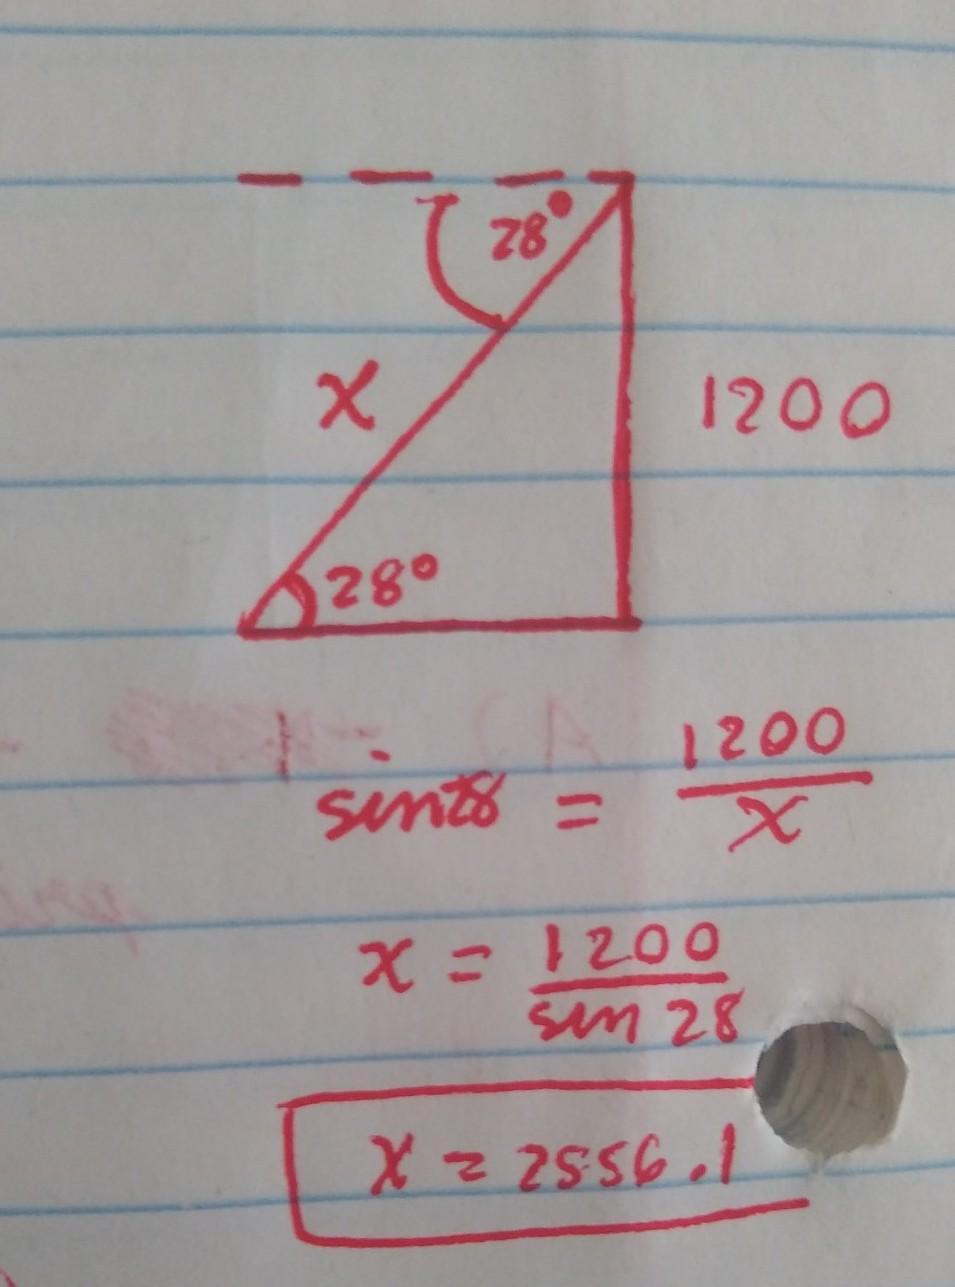 28°
x
1200
28°
sin28 = 1200/x
x = 1200/sin 28
x = 2556.1